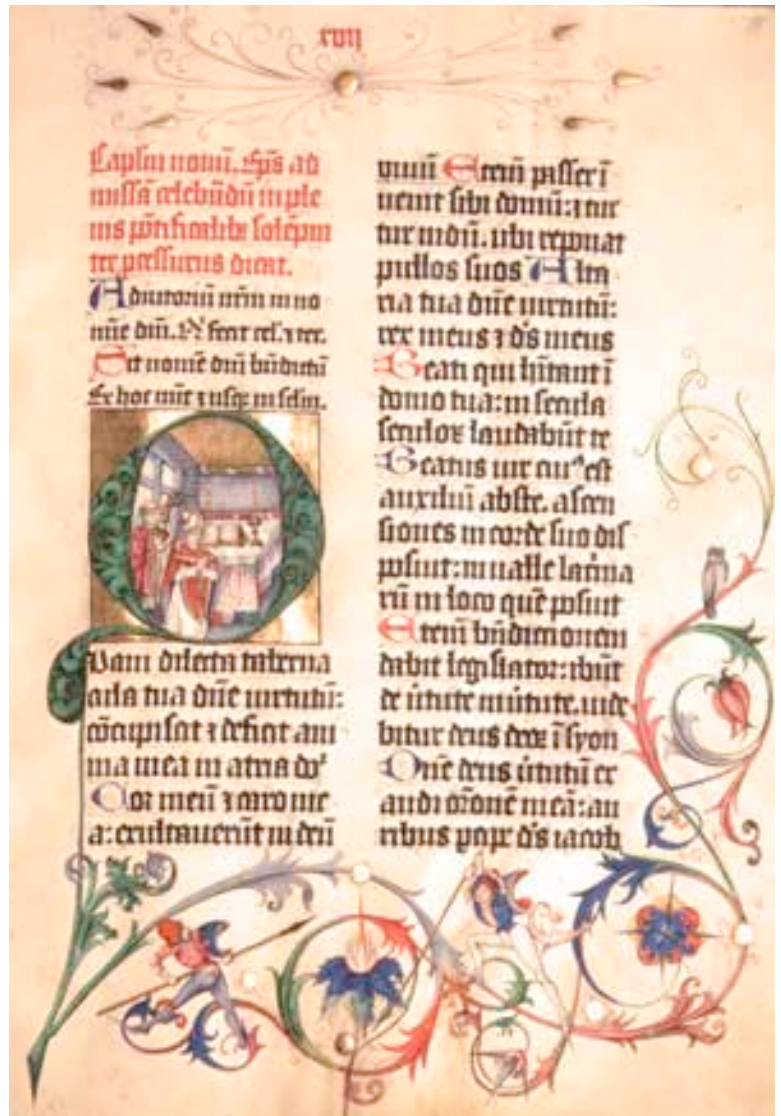 xvii
Capłm nonū. Ep̄s ad
missā celebrādū in ple
nis pōtificalibꝫ solēpni
ter processurus dicat.
Adiutoriū nr̄m in no
mīe dn̄i. ꝶ fecit cel. ⁊ ter.
Sit nomē dn̄i bn̄dictū
Ex hoc nūc ⁊ usqꝫ in sclm̄.
Quam dilecta taberna
cula tua dn̄e uirtutū:
cōcupiscit ⁊ deficit ani
ma mea in atria do͛
Cor meū ⁊ caro me
a: exultauerūt in deū
uiuū Etenī passer ī
uenit sibi domū: ⁊ tur
tur nidū. ubi reponat
pullos suos Alta
ria tua dn̄e uirtutū:
rex meus ⁊ ds̄ meus
Beati qui hītant ī
domo tua: in secula
seculoꝝ laudabūt te
Beatus uir cuiꝰ est
auxiliū abste. ascen
siones in corde suo dis
posuit: in ualle lacrima
rū in loco quē posuit
Etenī bn̄dictionem
dabit legislator: ibūt
de ūtute in ūtutē. uide
bitur deus deoꝝ ī syon
Dn̄e deus ūtutū ex
audi or̄onē meā: au
ribus pcipe ds̄ iacob